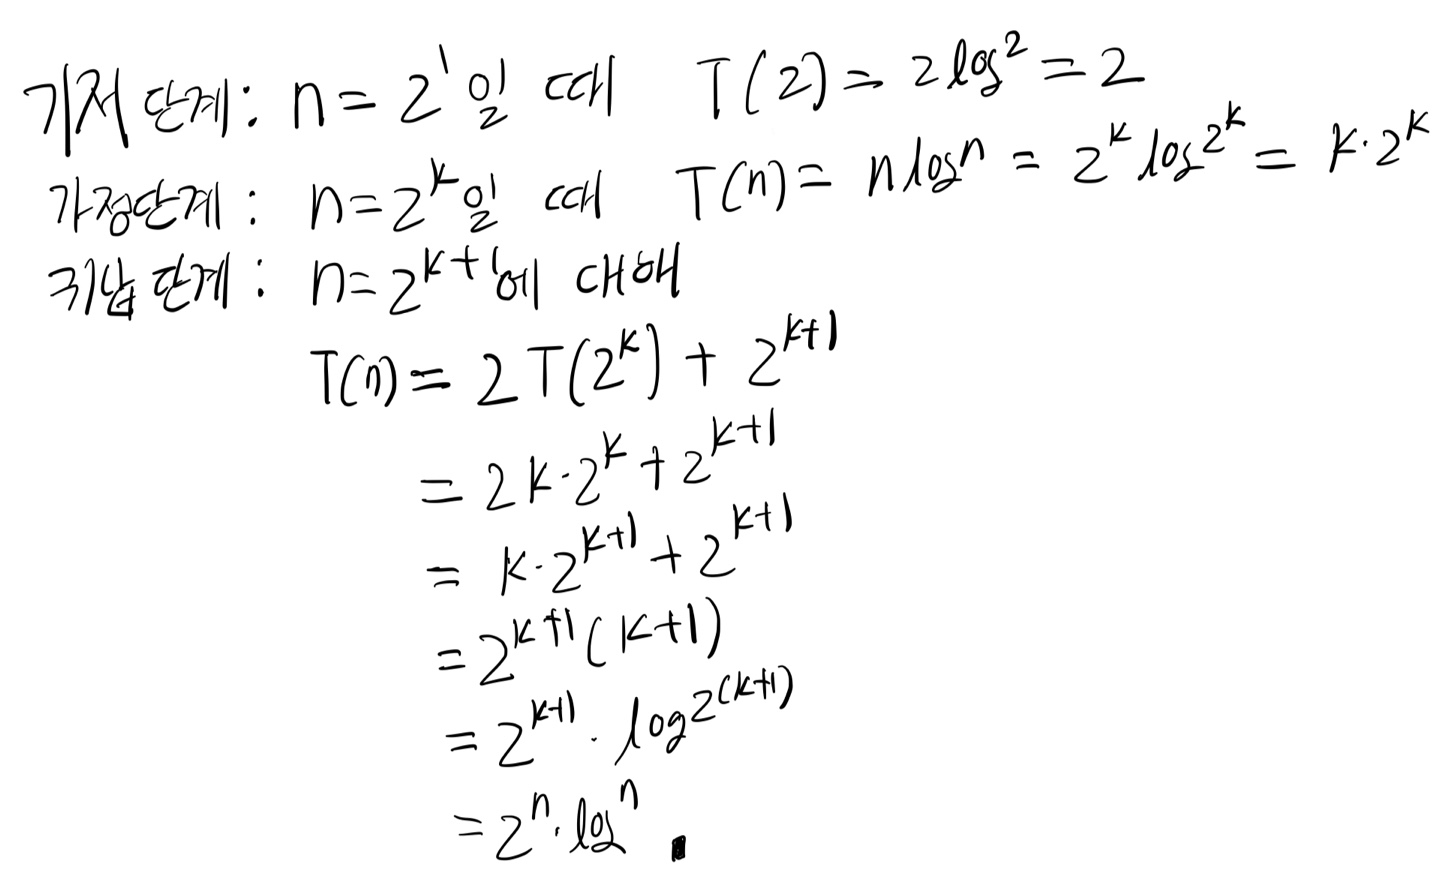 기저 단계: n = 2^1일 때 T(2) = 2 log 2 = 2
가정단계: n = 2^k일 때 T(n) = n log n = 2^k log 2^k = k·2^k
귀납 단계: n = 2^{k+1}에 대해
T(n) = 2T(2^k) + 2^{k+1}
= 2k·2^k + 2^{k+1}
= k·2^{k+1} + 2^{k+1}
= 2^{k+1}(k+1)
= 2^{k+1}·log 2^{(k+1)}
= 2^n·log n